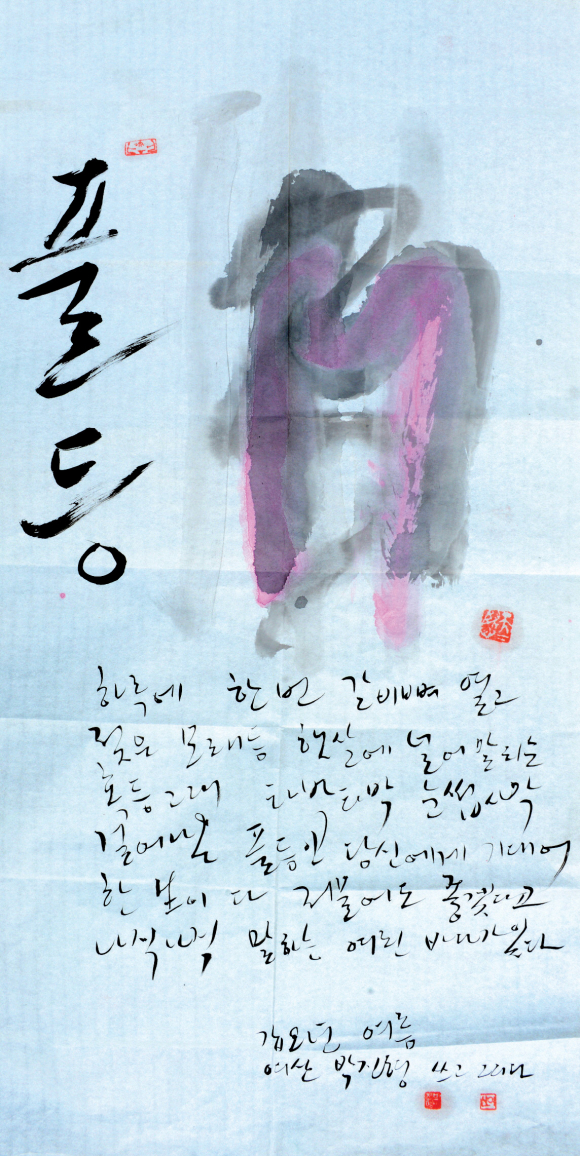 풀등
하루에 한 번 갈비뼈 열고
젖은 모래등 햇살에 널어 말리는
혹등고래 터벅터벅 눈썹사막
걸어나온 풀등인 당신에게 기대어
한 생이 다 저물어도 좋겠다고
나직나직 말하는 여린 바다가 있다
갑오년 여름
여산 박진형 쓰고 그리다